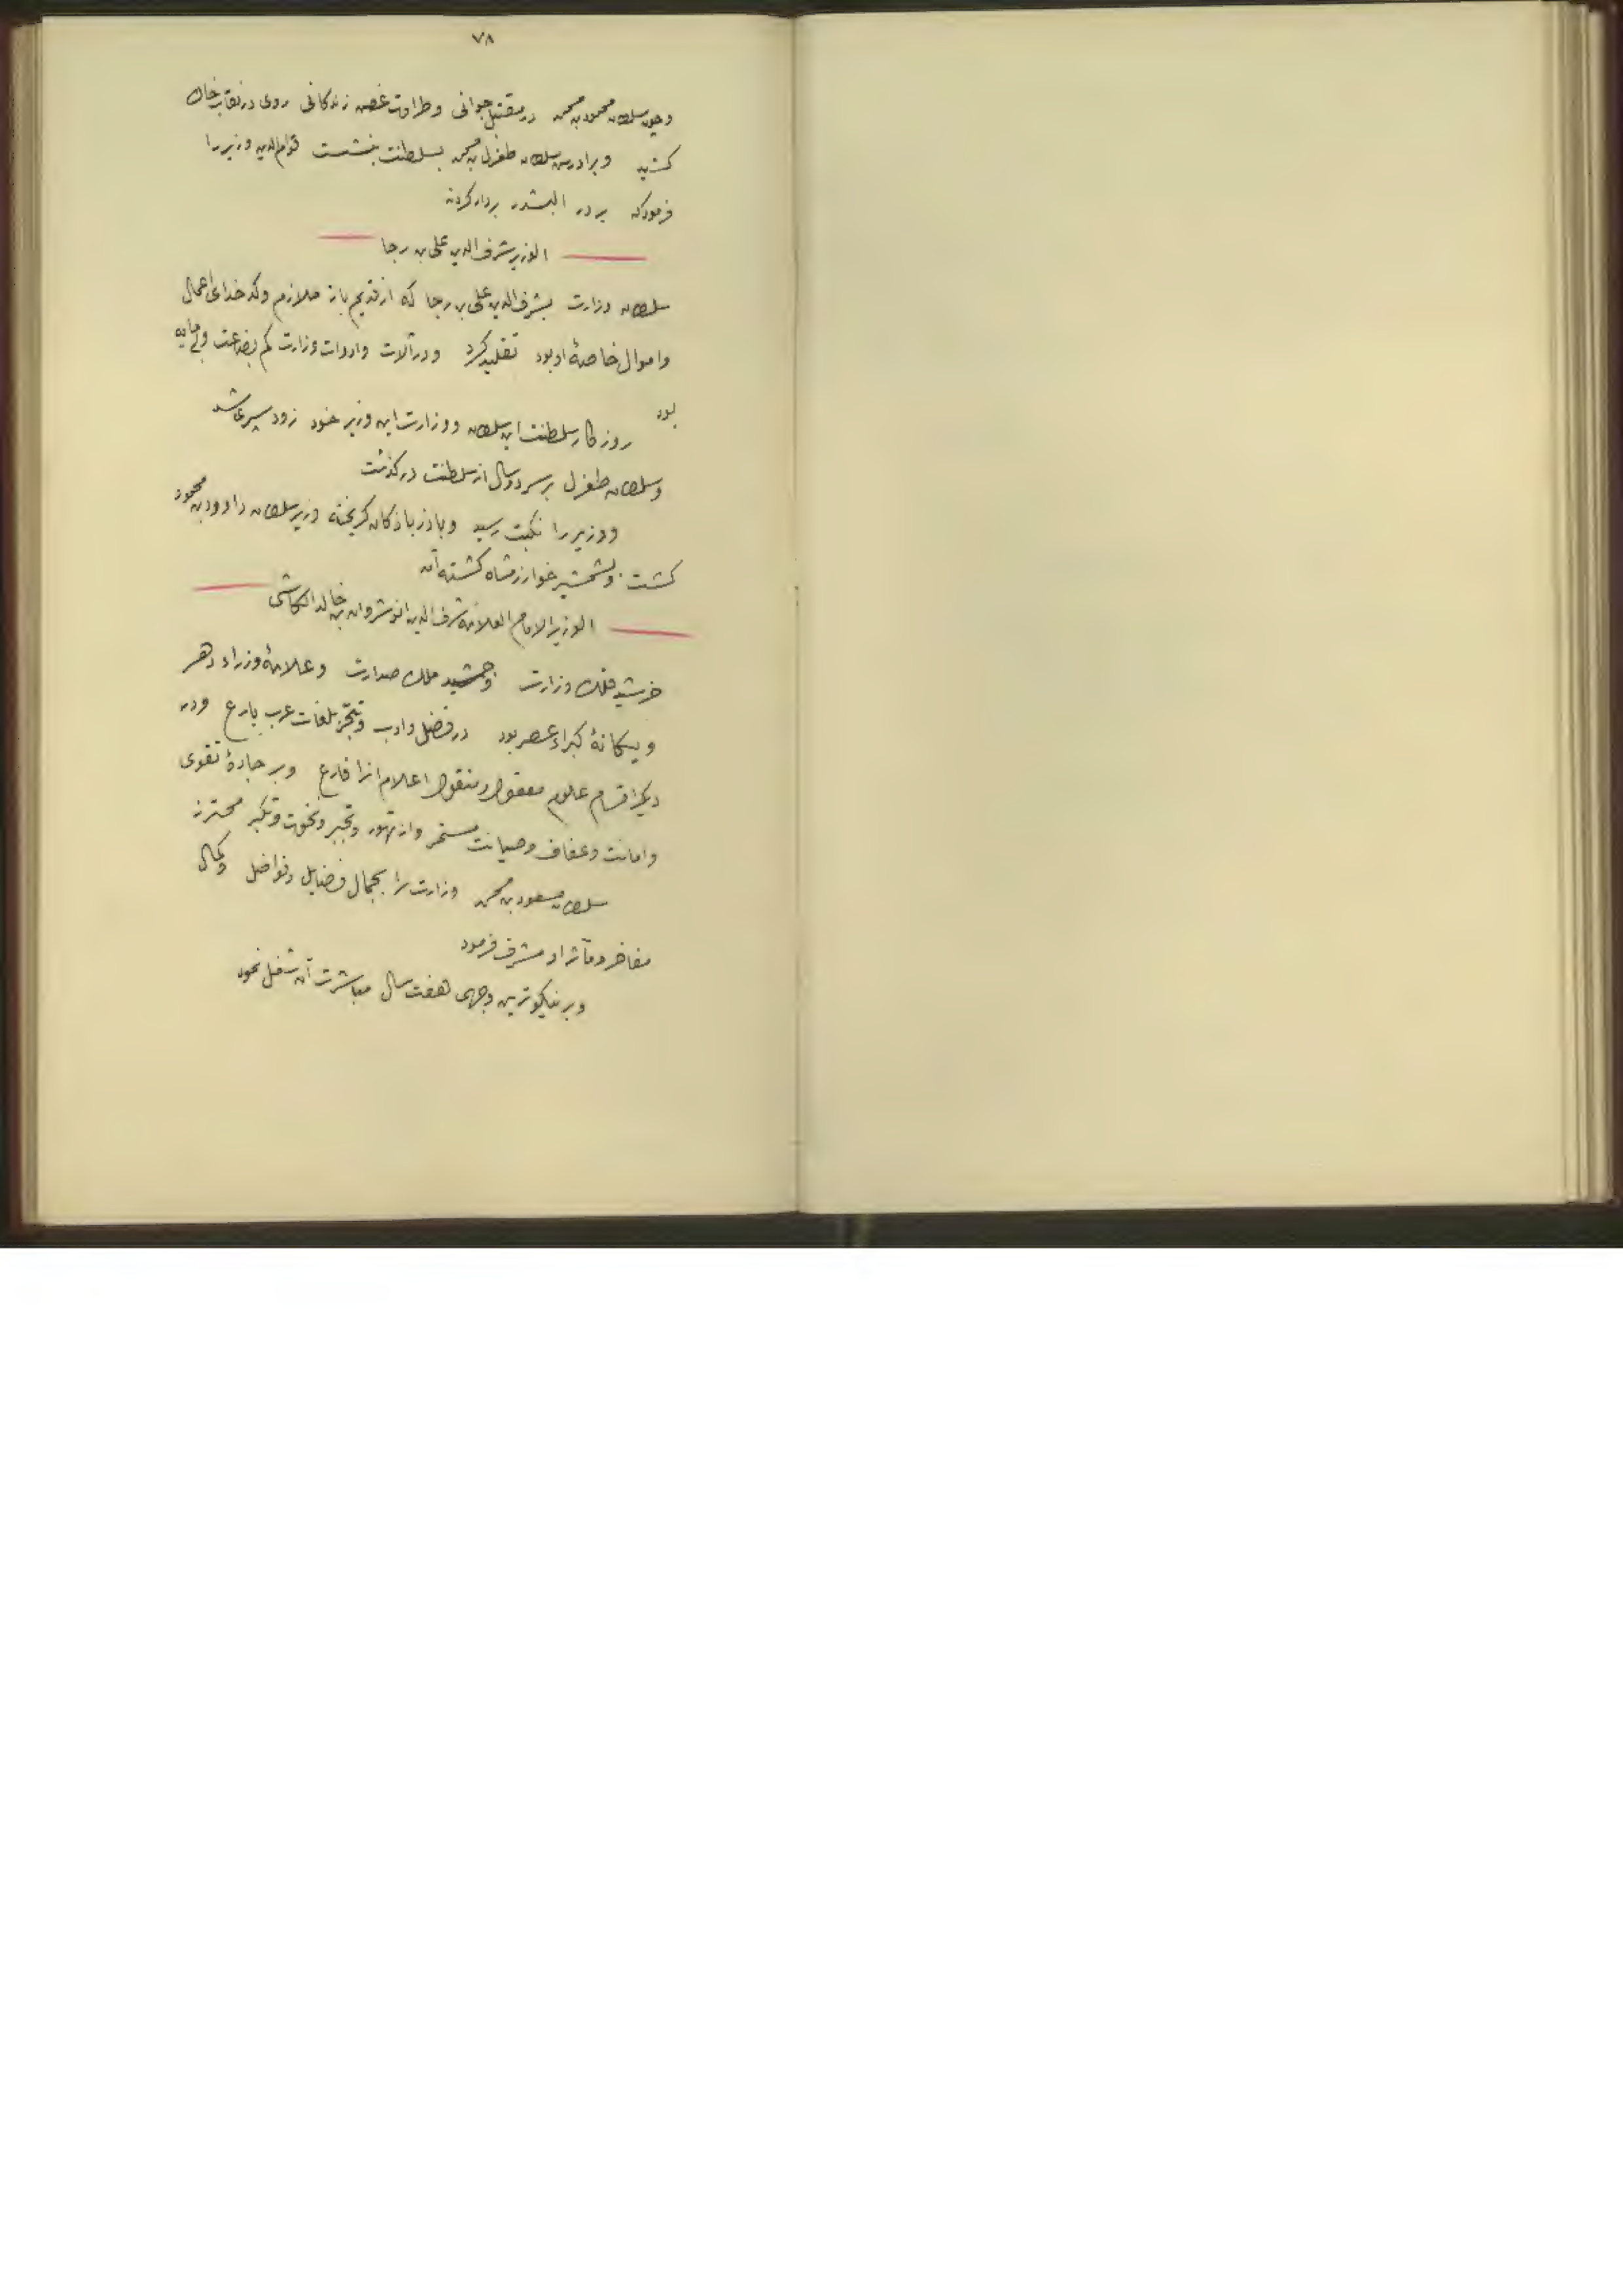 ٧٨
وچون سلطان محمود بن محمد در مقتبل جوانی وطراوت غصن زندکانی روی در نقاب خاک
کشید وبرادرش سلطان طغرل بن محمد بسلطنت بنشست قوام الدین وزیر را
فرمود که بر در البشتر بردار کردند
الوزیر شرف الدین علی بن رجا
سلطان وزارت بشرف الدین علی بن رجا که از قدیم باز ملازم وکدخدای اعمال
واموال خاصهٔ او بود تقلید کرد ودر آلات وادوات وزارت کم بضاعت وبی مایه
بود روزکار سلطنت این سلطان ووزارت این وزیر خود زود سپری شد
وسلطان طغرل بر سر دو سال از سلطنت درکذشت
ووزیر را نکبت رسید وباذرباذکان کریخته وزیر سلطان داوود بن محمود
کشت وبشمشیر خوارزمشاه کشته آمد
الوزیر الامام العلامه شرف الدین انوشروان بن خالد الکاشی
خرشید فلک وزارت وجمشید ملک صدارت وعلامهٔ وزراء دهر
ویکانهٔ کبراء عصر بود در فضل وادب وتبحّر بلغات عرب بارع ودر
دیکر اقسام علوم معقول ومنقول اعلام انرا فارع وبر جادهٔ تقوی
وامانت وعفاف وصیانت مستمر واز تهور وتجبر ونخوت وتکبر محترز
سلطان مسعود بن محمد وزارت را بجمال فضایل وفواضل وکمال
مفاخر ومآثر او مشرف فرمود
وبر نیکوترین وجهی هفت سال مباشرت آن شغل نمود